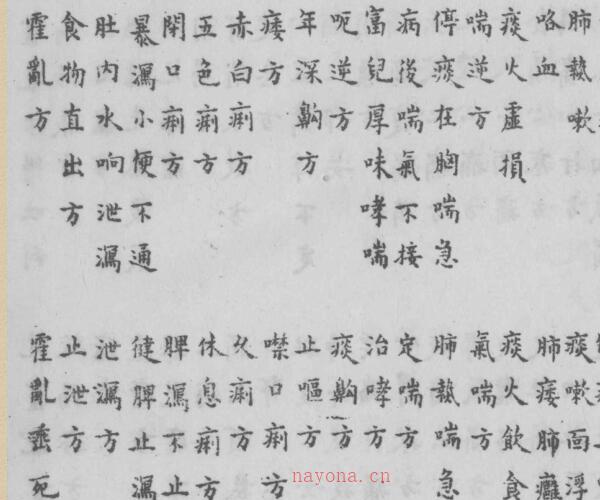 肺熱嗽
咯血
痰火虛損
喘逆方
停痰在胸喘急
病後喘氣不接
富兒厚味哮喘
呃逆方
年深齁方
痿方
赤白痢方
五色痢方
閉口痢方
暴瀉小便不通
肚内水响泄瀉
食物直出方
霍亂方
痰嗽面浮
肺痿肺癰
痰火飲食
氣喘方
肺熱喘急
定喘方
治哮方
痰齁方
止嘔方
噤口痢方
久痢方
休息痢方
脾瀉不止
健脾止瀉
泄瀉方
止泄方
霍亂垂死
nayona.cn